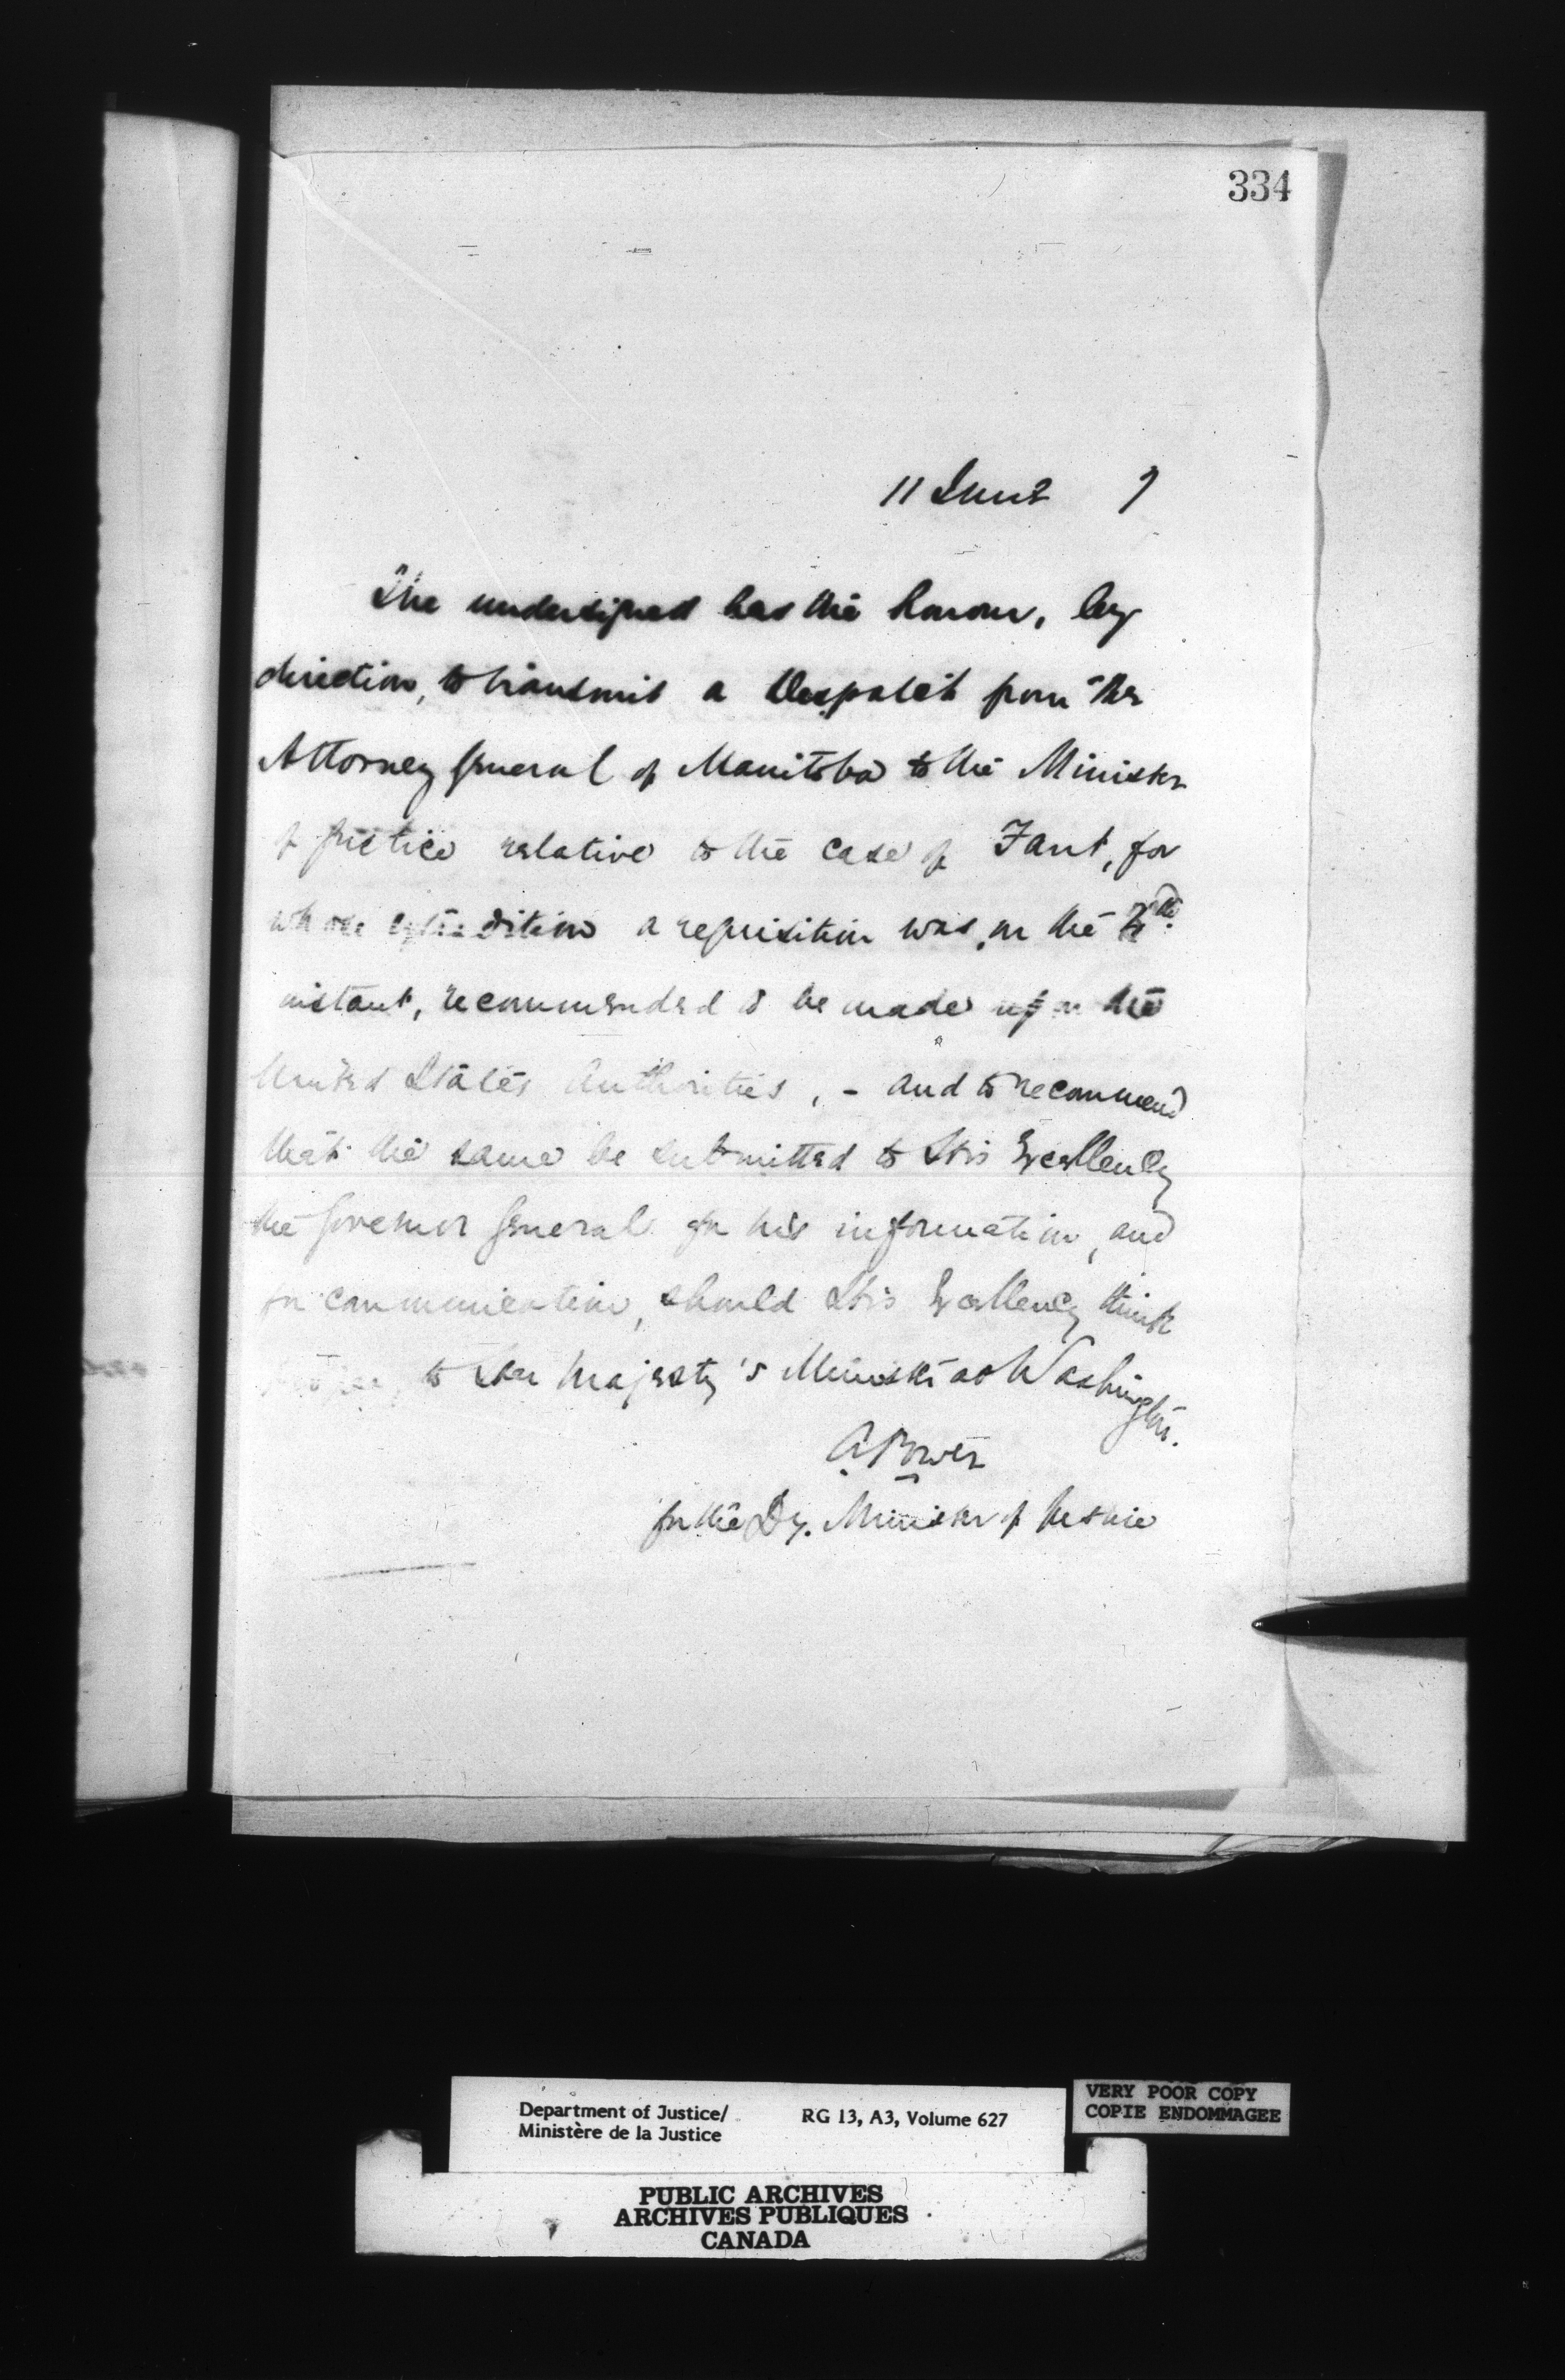 334
11 June 7
The undersigned has the honour, by
direction, to transmit a Despatch from the
Attorney General of Manitoba to the Minister
of Justice relative to the case of Fant, for
whose extradition a requisition was, on the
instant, recommended to be made upon the
United States Authorities, - and to recommend
that the same be submitted to His Excellency
the Governor General for his information, and
for communication, should His Excellency think
to Her Majesty's Minister at Washington.
A Power
for the Dy. Minister of Justice
Department of Justice/
Ministère de la Justice
RG 13, A3, Volume 627
VERY POOR COPY
COPIE ENDOMMAGEE
PUBLIC ARCHIVES
ARCHIVES PUBLIQUES
CANADA